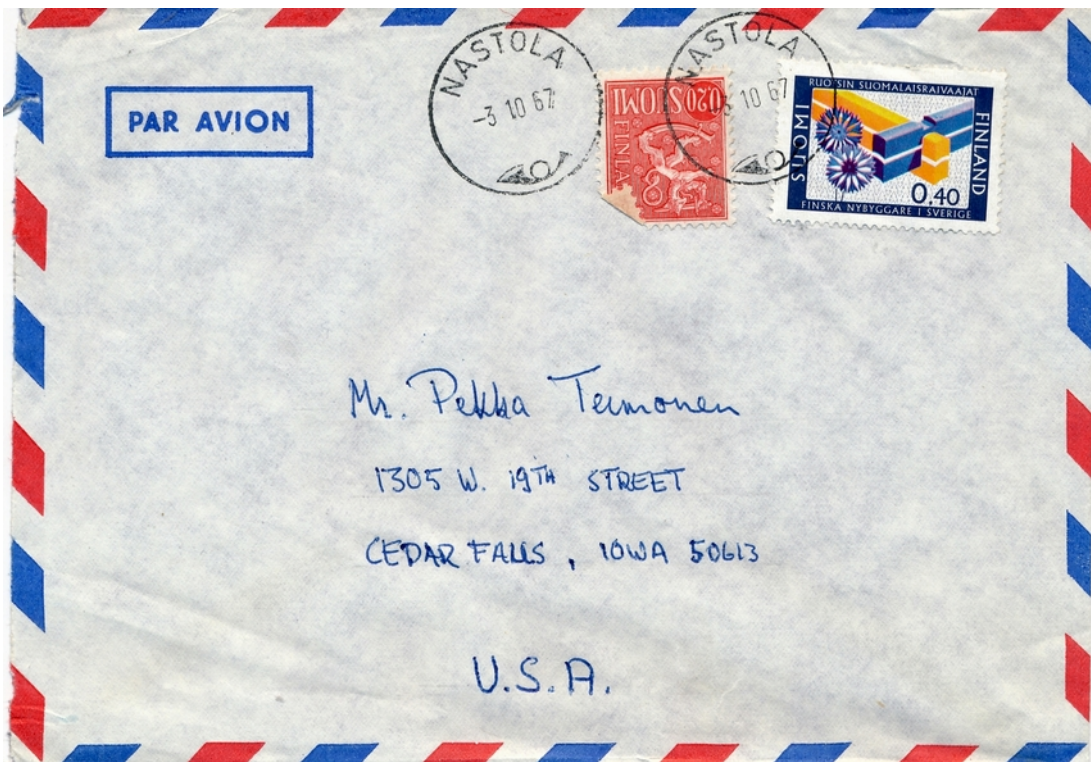 PAR AVION
NASTOLA
-3 10 67
NASTOLA
-3 10 67
0,20 SUOMI
FINLA
RUOTSIN SUOMALAISRAIVAAJAT
SUOMI
FINLAND
0,40
FINSKA NYBYGGARE I SVERIGE
Mr. Pekka Teimonen
1305 W. 19TH STREET
CEDAR FALLS, IOWA 50613
U.S.A.